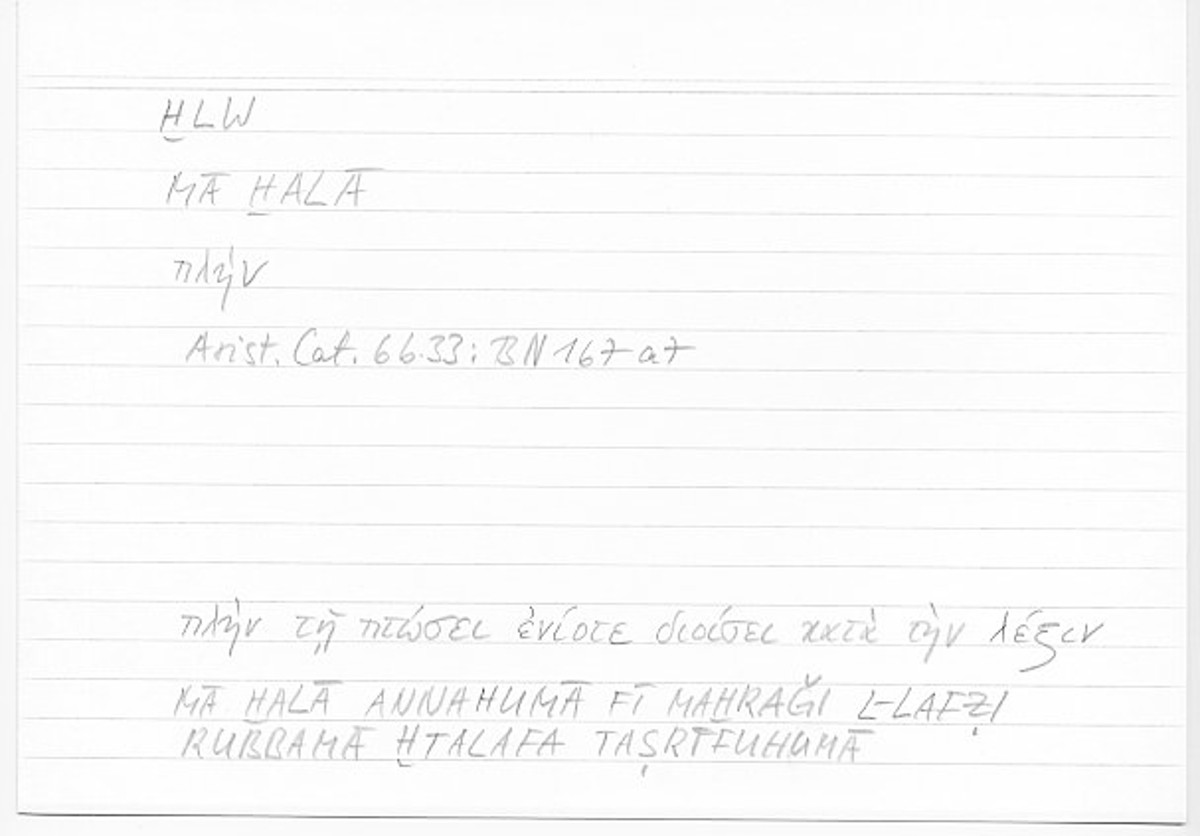 ḪLW
MĀ ḪALĀ
πλήν
Arist. Cat. 6b33: BN 167a7
πλὴν τῇ πτώσει ἐνίοτε διοίσει κατὰ τὴν λέξιν
MĀ ḪALĀ ANNAHUMĀ FĪ MAḪRAǦI L-LAFẒI
RUBBAMĀ ḪTALAFA TAṢRĪFUHUMĀ